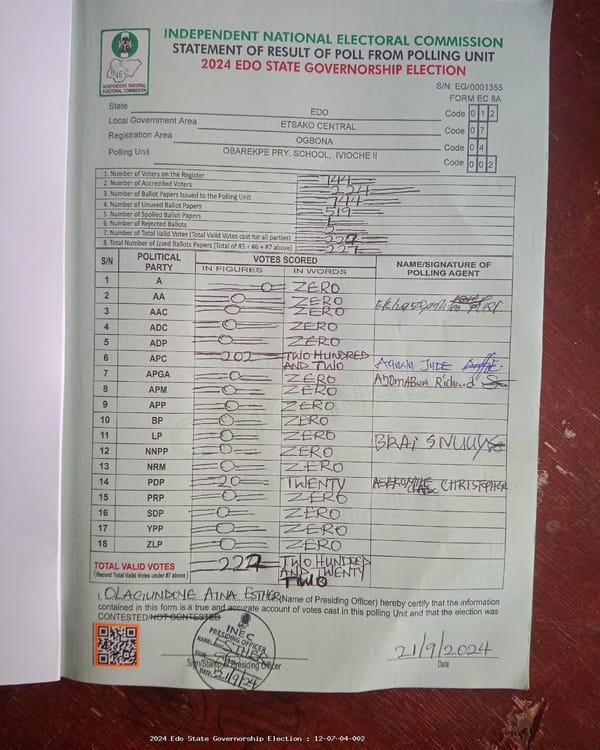 INDEPENDENT NATIONAL ELECTORAL COMMISSION
STATEMENT OF RESULT OF POLL FROM POLLING UNIT
2024 EDO STATE GOVERNORSHIP ELECTION
INEC
INDEPENDENT NATIONAL ELECTORAL COMMISSION
S/N: EG/0001355
FORM EC 8A
State EDO Code 0 1 2
Local Government Area ETSAKO CENTRAL Code 0 7
Registration Area OGBONA Code 0 4
Polling Unit OBAREKPE PRY. SCHOOL, IVIOCHE II Code 0 0 2
1. Number of Voters on the Register 744
2. Number of Accredited Voters 224
3. Number of Ballot Papers Issued to the Polling Unit 744
4. Number of Unused Ballot Papers 519
5. Number of Spoiled Ballot Papers
6. Number of Rejected Ballots
7. Number of Total Valid Votes (Total Valid Votes cast for all parties) 222
8. Total Number of Used Ballots Papers (Total of #5 + #6 + #7 above) 227
S/N POLITICAL PARTY VOTES SCORED NAME/SIGNATURE OF POLLING AGENT
IN FIGURES IN WORDS
1 A 0 ZERO
2 AA 0 ZERO
3 AAC 0 ZERO
4 ADC 0 ZERO
5 ADP 0 ZERO
6 APC 202 TWO HUNDRED AND TWO
7 APGA 0 ZERO Richard
8 APM 0 ZERO
9 APP 0 ZERO
10 BP 0 ZERO
11 LP 0 ZERO
12 NNPP 0 ZERO
13 NRM 0 ZERO
14 PDP 20 TWENTY CHRISTOPHER
15 PRP 0 ZERO
16 SDP 0 ZERO
17 YPP 0 ZERO
18 ZLP 0 ZERO
TOTAL VALID VOTES 222 TWO HUNDRED AND TWENTY TWO
(Record Total Valid Votes under #7 above)
I, OLAGUNDOYE AINA ESTHER (Name of Presiding Officer) hereby certify that the information
contained in this form is a true and accurate account of votes cast in this polling unit and that the election was
CONTESTED/NOT CONTESTED
INEC
PRESIDING OFFICER
NAME: ESTHER
SIGN:
DATE: 21/9/24
Sign/Stamp of Presiding Officer
21/9/2024
Date
2024 Edo State Governorship Election : 12-07-04-002